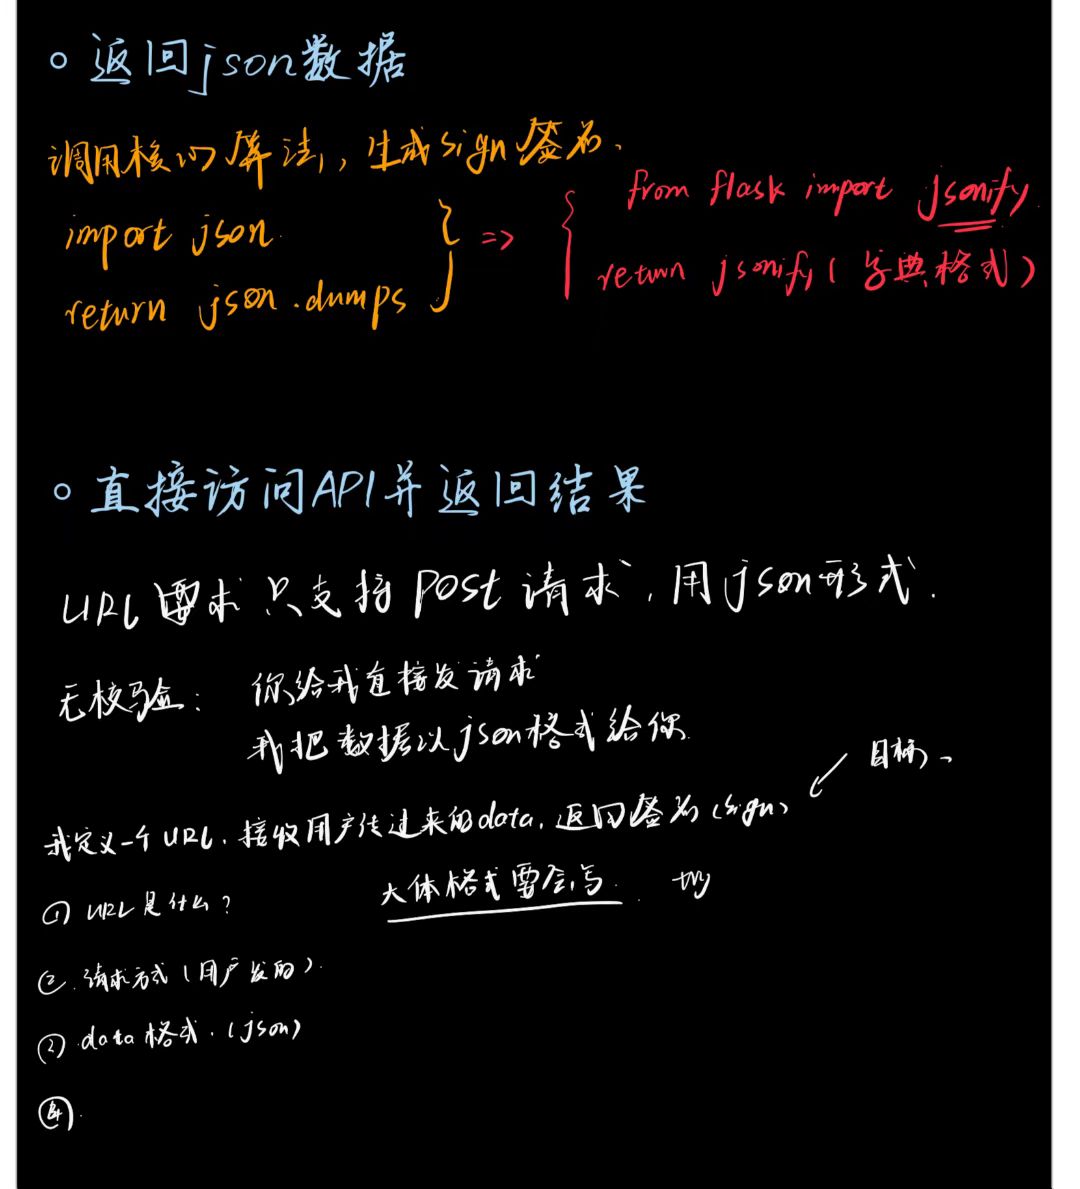 返回json数据
调用核心算法,生成sign签名.
import json.
return json.dumps
=>
from flask import jsonify.
return jsonify(字典格式)
直接访问API并返回结果
URL要求只支持post请求,用json形式.
无校验: 你给我直接发请求
我把数据以json格式给你.
目标、
我定义一个URL,接收用户传过来的data,返回签名(sign)
大体格式要会写.
① URL是什么?
②.请求方式(用户发的).
③ data格式.(json)
④.